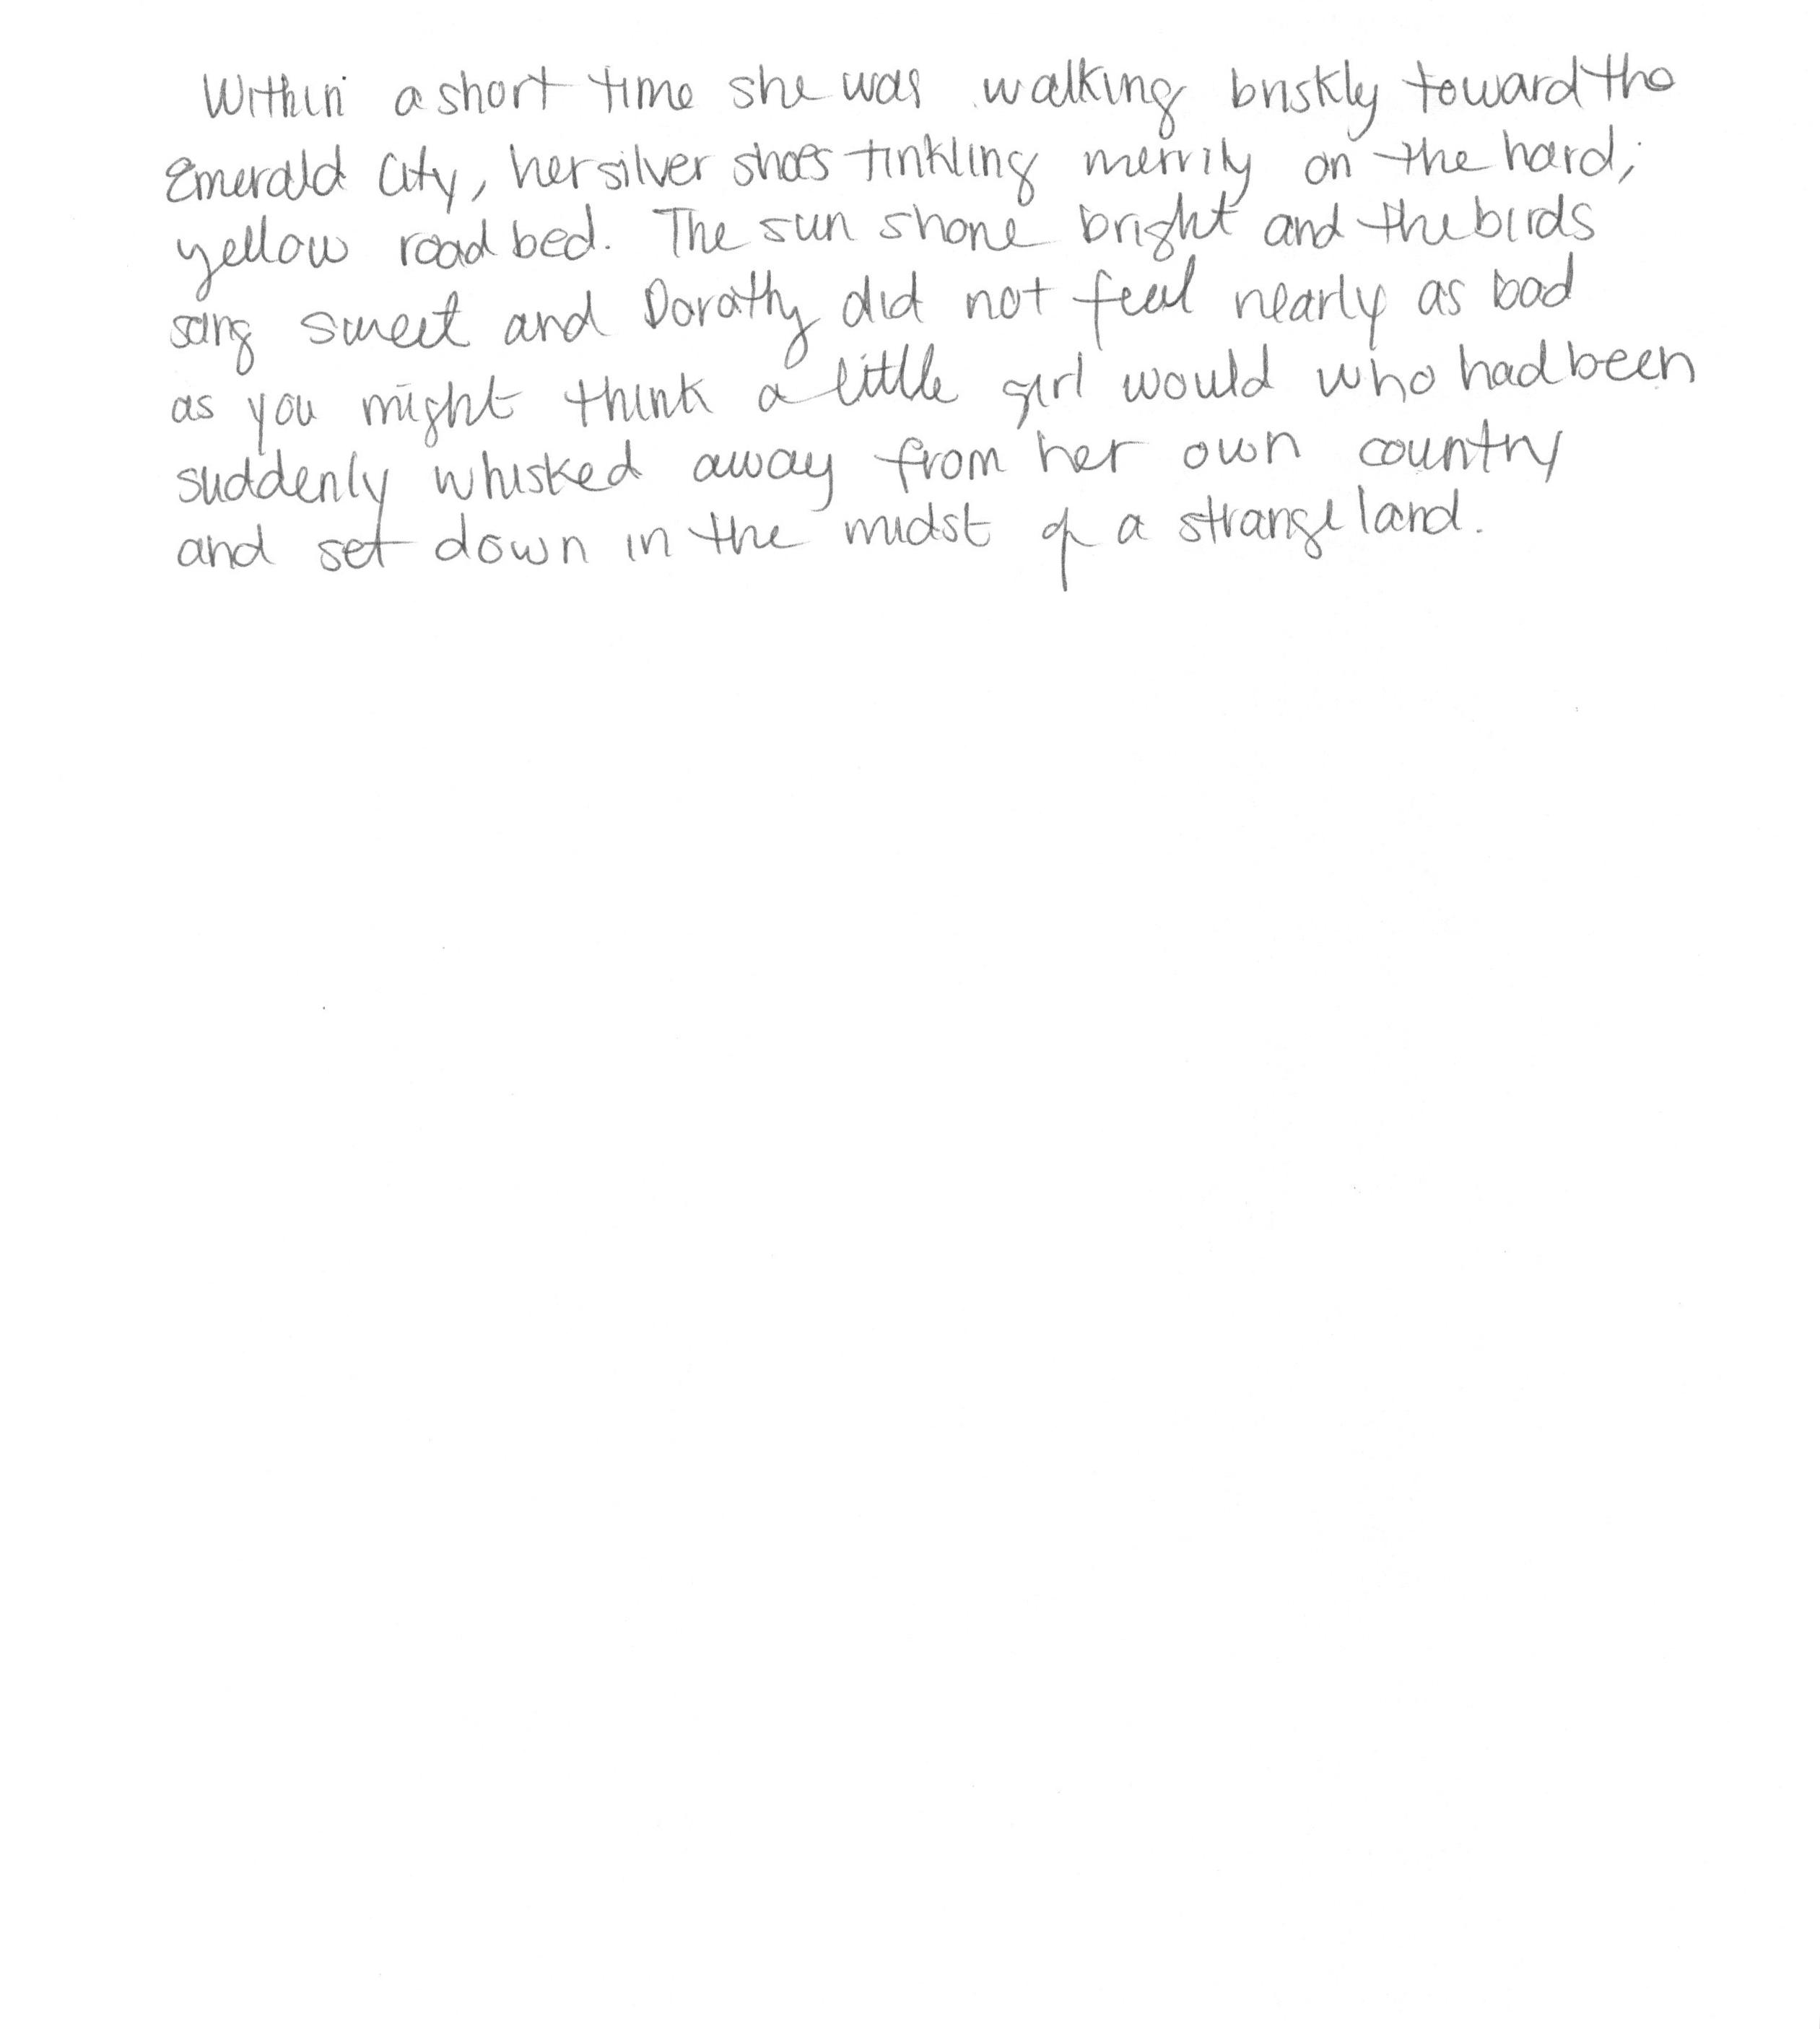 Within a short time she was walking briskly toward the
Emerald City, her silver shoes tinkling merrily on the hard,
yellow road bed. The sun shone bright and the birds
sang sweet and Dorothy did not feel nearly as bad
as you might think a little girl would who had been
suddenly whisked away from her own country
and set down in the midst of a strange land.